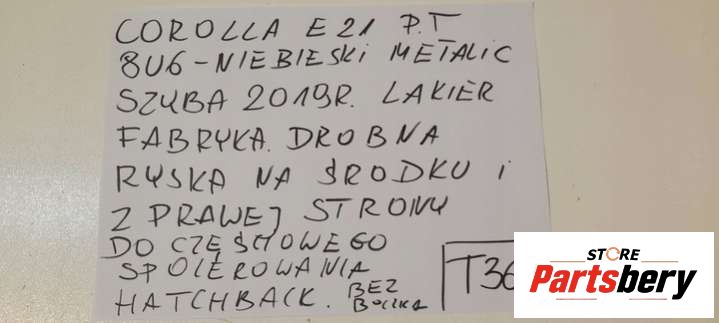 COROLLA E21 P.T
8U6-NIEBIESKI METALIC
SZYBA 2019R. LAKIER
FABRYKA. DROBNA
RYSKA NA ŚRODKU i
Z PRAWEJ STRONY
DO CZĘŚIOWEGO
SPOLEROWANIA
HATCHBACK. BEZ
BOCZKA
T36
STORE
Partsbery